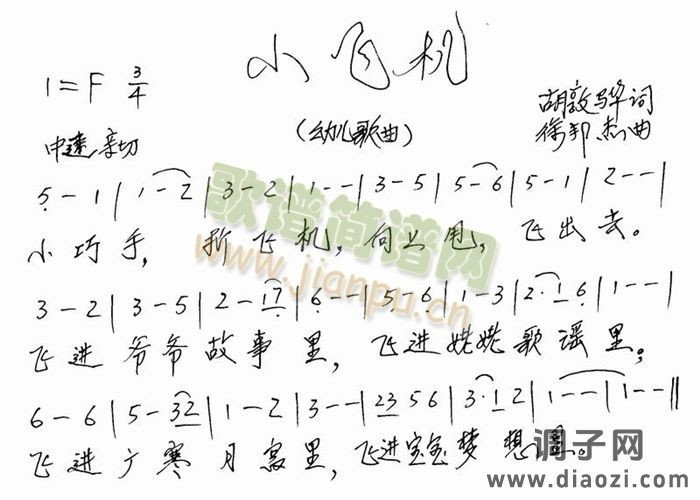 小飞机
1=F 3/4
(幼儿歌曲)
胡敦骅词
中速 亲切
徐邦杰曲
5-1|1-2|3-2|1--|3-5|5-6|5-1|2--|
小巧手, 折飞机, 向上甩, 飞出去。
3-2|3-5|2-17|6--|5-6|1-3|2·16|1--|
飞进爷爷故事里, 飞进姥姥歌谣里;
6-6|5-32|1-2|3--|23 5 6|3·12|1--|1--||
飞进广寒月宫里, 飞进宝宝梦想里。
歌谱简谱网
www.jianpu.cn
调子网
www.diaozi.com